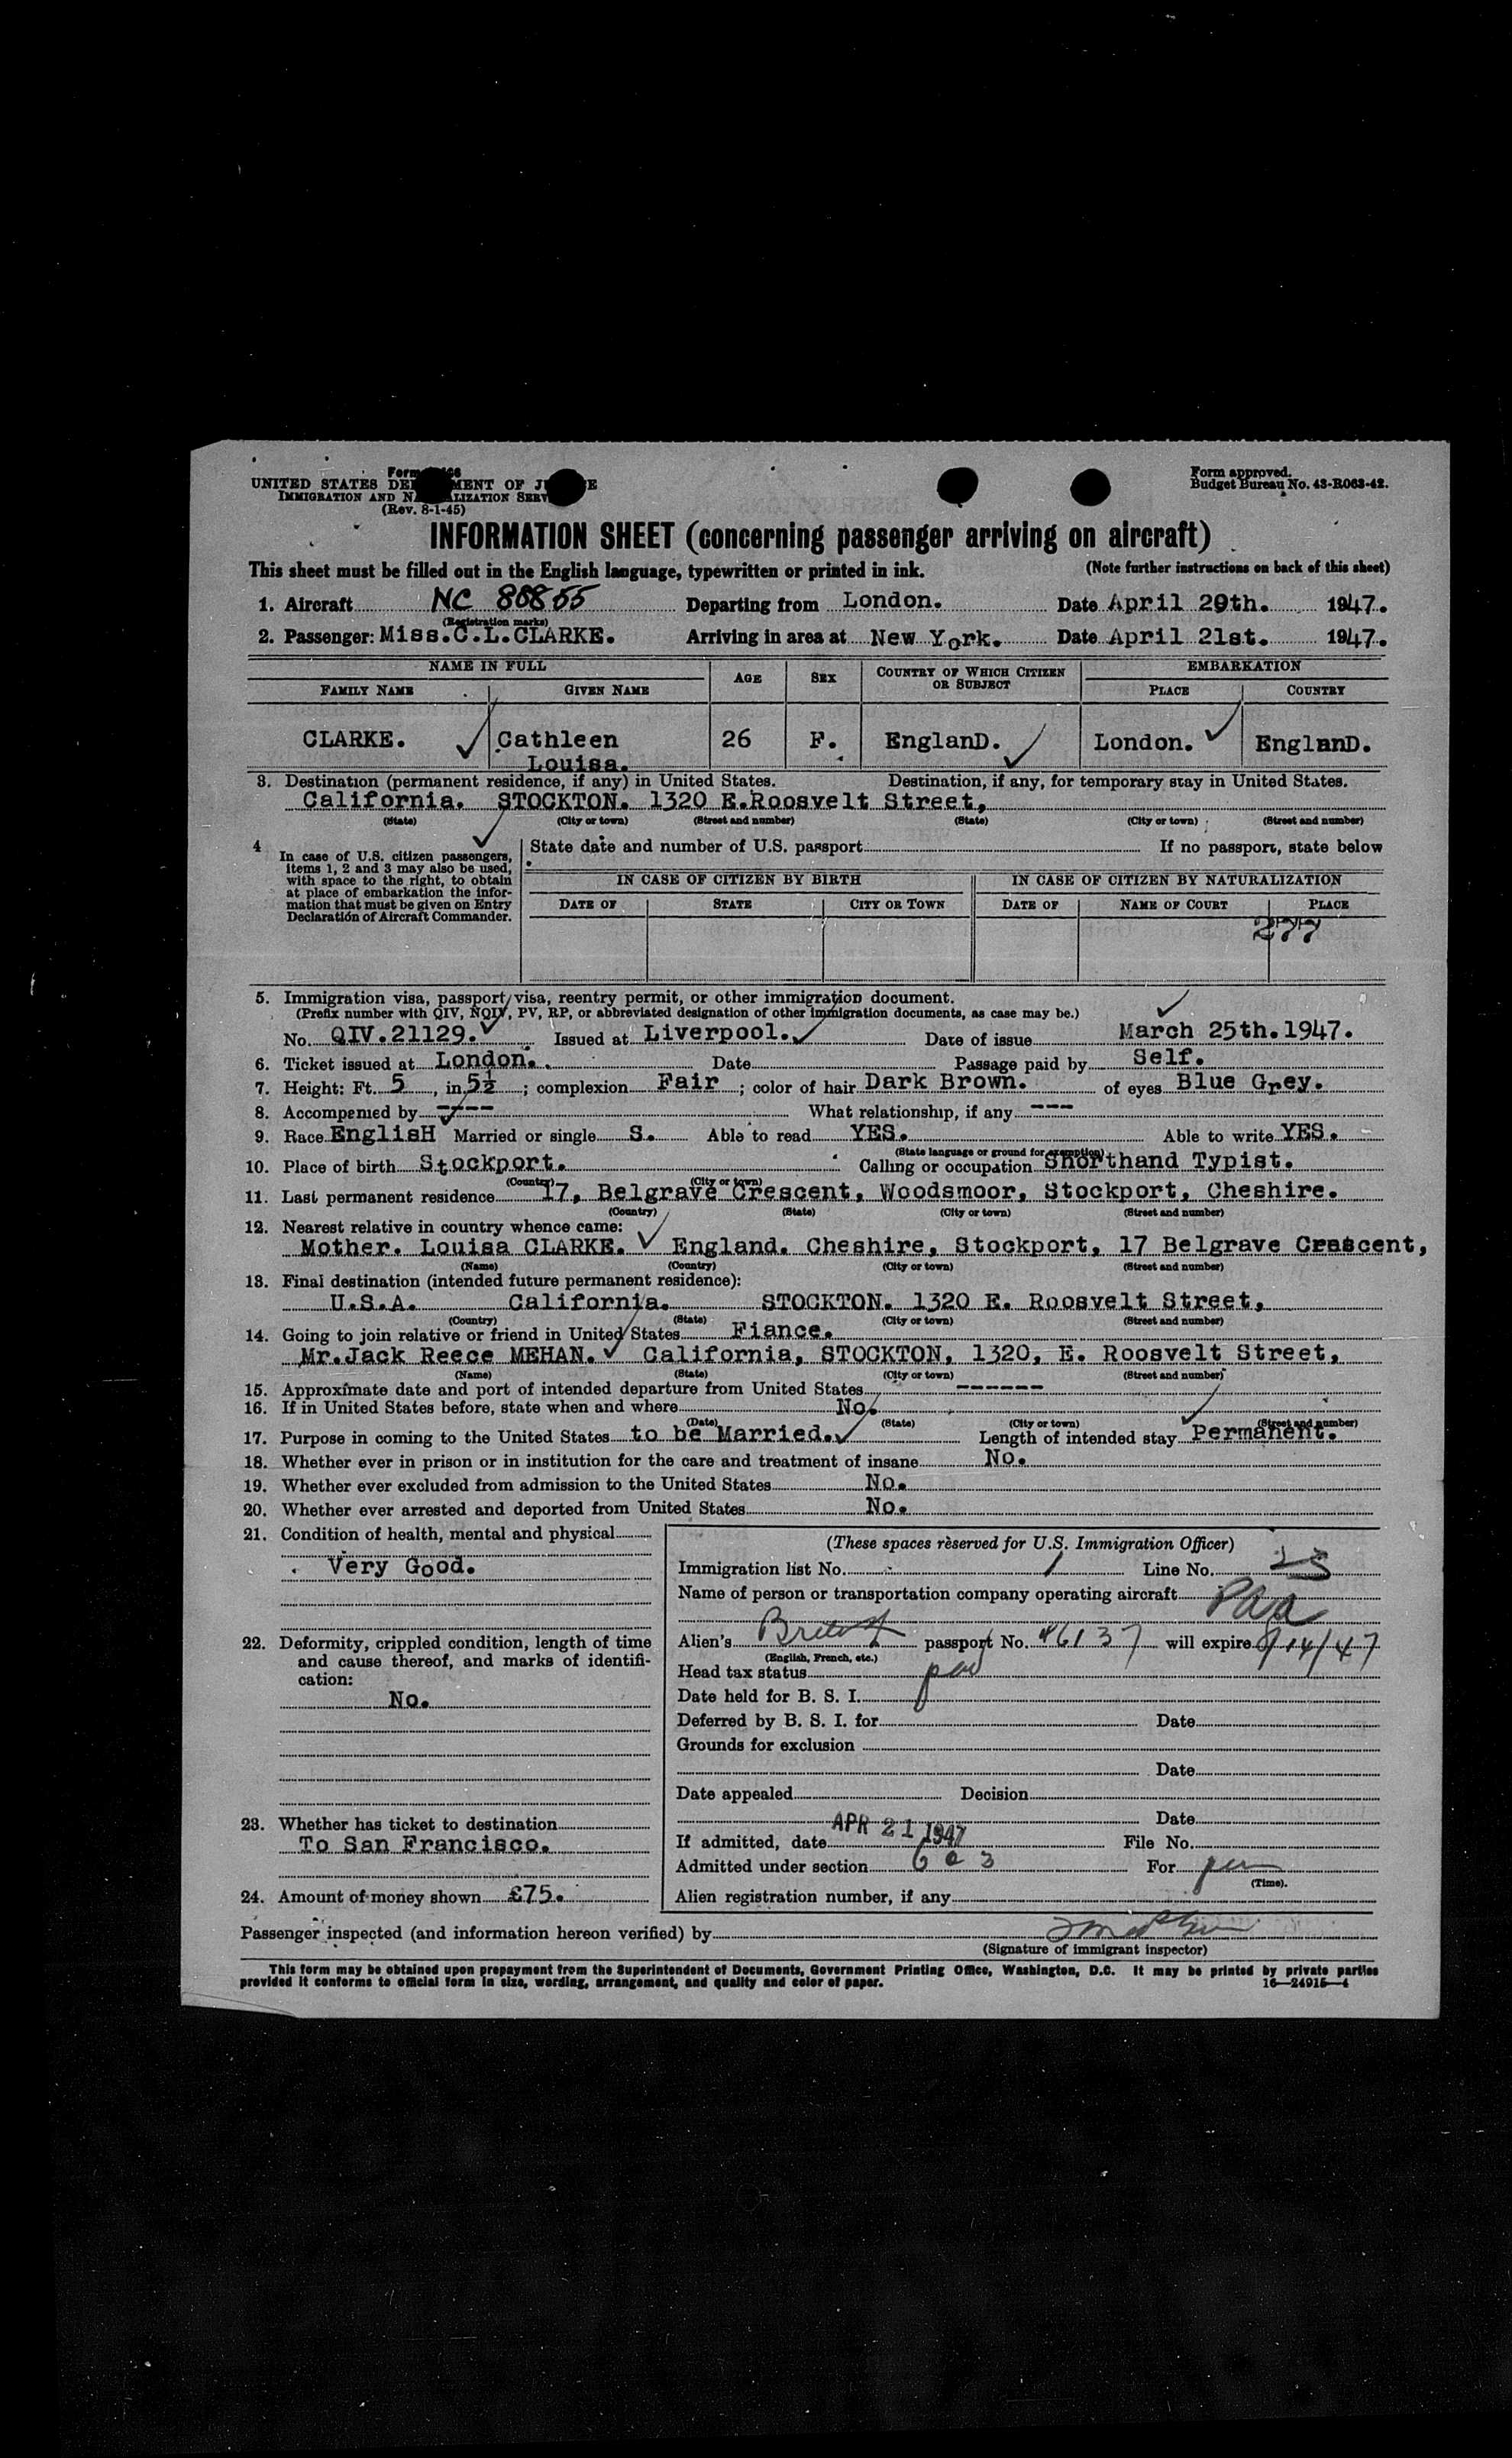 Form
UNITED STATES DEPARTMENT OF JUSTICE
IMMIGRATION AND NATURALIZATION SERVICE
(Rev. 8-1-45)
Form approved.
Budget Bureau No. 43-R063-42.
INFORMATION SHEET (concerning passenger arriving on aircraft)
This sheet must be filled out in the English language, typewritten or printed in ink. (Note further instructions on back of this sheet)
1. Aircraft NC 88855 Departing from London. Date April 20th. 1947.
(Registration marks)
2. Passenger: Miss.C.L.CLARKE. Arriving in area at New York. Date April 21st. 1947.
NAME IN FULL AGE SEX COUNTRY OF WHICH CITIZEN OR SUBJECT EMBARKATION
FAMILY NAME GIVEN NAME PLACE COUNTRY
CLARKE. Cathleen Louisa. 26 F. EnglanD. London. EnglanD.
3. Destination (permanent residence, if any) in United States. Destination, if any, for temporary stay in United States.
California. STOCKTON. 1320 E.Roosvelt Street,
(State) (City or town) (Street and number) (State) (City or town) (Street and number)
4 In case of U.S. citizen passengers, items 1, 2 and 3 may also be used, with space to the right, to obtain at place of embarkation the information that must be given on Entry Declaration of Aircraft Commander.
State date and number of U.S. passport If no passport, state below
IN CASE OF CITIZEN BY BIRTH IN CASE OF CITIZEN BY NATURALIZATION
DATE OF STATE CITY OR TOWN DATE OF NAME OF COURT PLACE
277
5. Immigration visa, passport visa, reentry permit, or other immigration document.
(Prefix number with QIV, NQIV, PV, RP, or abbreviated designation of other immigration documents, as case may be.)
No. QIV.21129. Issued at Liverpool. Date of issue March 25th.1947.
6. Ticket issued at London. Date Passage paid by Self.
7. Height: Ft. 5, in 5½; complexion Fair; color of hair Dark Brown. of eyes Blue Grey.
8. Accompanied by ---- What relationship, if any ---
9. Race EnglisH Married or single S. Able to read YES. Able to write YES.
(State language or ground for exemption)
10. Place of birth Stockport. Calling or occupation Shorthand Typist.
(Country) (City or town)
11. Last permanent residence 17, Belgrave Crescent, Woodsmoor, Stockport, Cheshire.
(Country) (State) (City or town) (Street and number)
12. Nearest relative in country whence came:
Mother. Louisa CLARKE. England. Cheshire, Stockport, 17 Belgrave Crescent,
(Name) (Country) (City or town) (Street and number)
13. Final destination (intended future permanent residence):
U.S.A. California. STOCKTON. 1320 E. Roosvelt Street,
(Country) (State) (City or town) (Street and number)
14. Going to join relative or friend in United States Fiance.
Mr.Jack Reece MEHAN. California, STOCKTON, 1320, E. Roosvelt Street,
(Name) (State) (City or town) (Street and number)
15. Approximate date and port of intended departure from United States ------
16. If in United States before, state when and where No.
(Date) (State) (City or town) (Street and number)
17. Purpose in coming to the United States to be Married. Length of intended stay Permanent.
18. Whether ever in prison or in institution for the care and treatment of insane No.
19. Whether ever excluded from admission to the United States No.
20. Whether ever arrested and deported from United States No.
21. Condition of health, mental and physical
Very Good.
22. Deformity, crippled condition, length of time and cause thereof, and marks of identification:
No.
23. Whether has ticket to destination
To San Francisco.
24. Amount of money shown £75.
(These spaces reserved for U.S. Immigration Officer)
Immigration list No. 1 Line No. 25
Name of person or transportation company operating aircraft PAA
Alien's British passport No. 46137 will expire /14/47
(English, French, etc.)
Head tax status pd
Date held for B. S. I.
Deferred by B. S. I. for Date
Grounds for exclusion
Date
Date appealed Decision
Date
If admitted, date APR 21 1947 File No.
Admitted under section 6 a 3 For per
(Time).
Alien registration number, if any
Passenger inspected (and information hereon verified) by
(Signature of immigrant inspector)
This form may be obtained upon prepayment from the Superintendent of Documents, Government Printing Office, Washington, D.C. It may be printed by private parties
provided it conforms to official form in size, wording, arrangement, and quality and color of paper. 16—24915-4